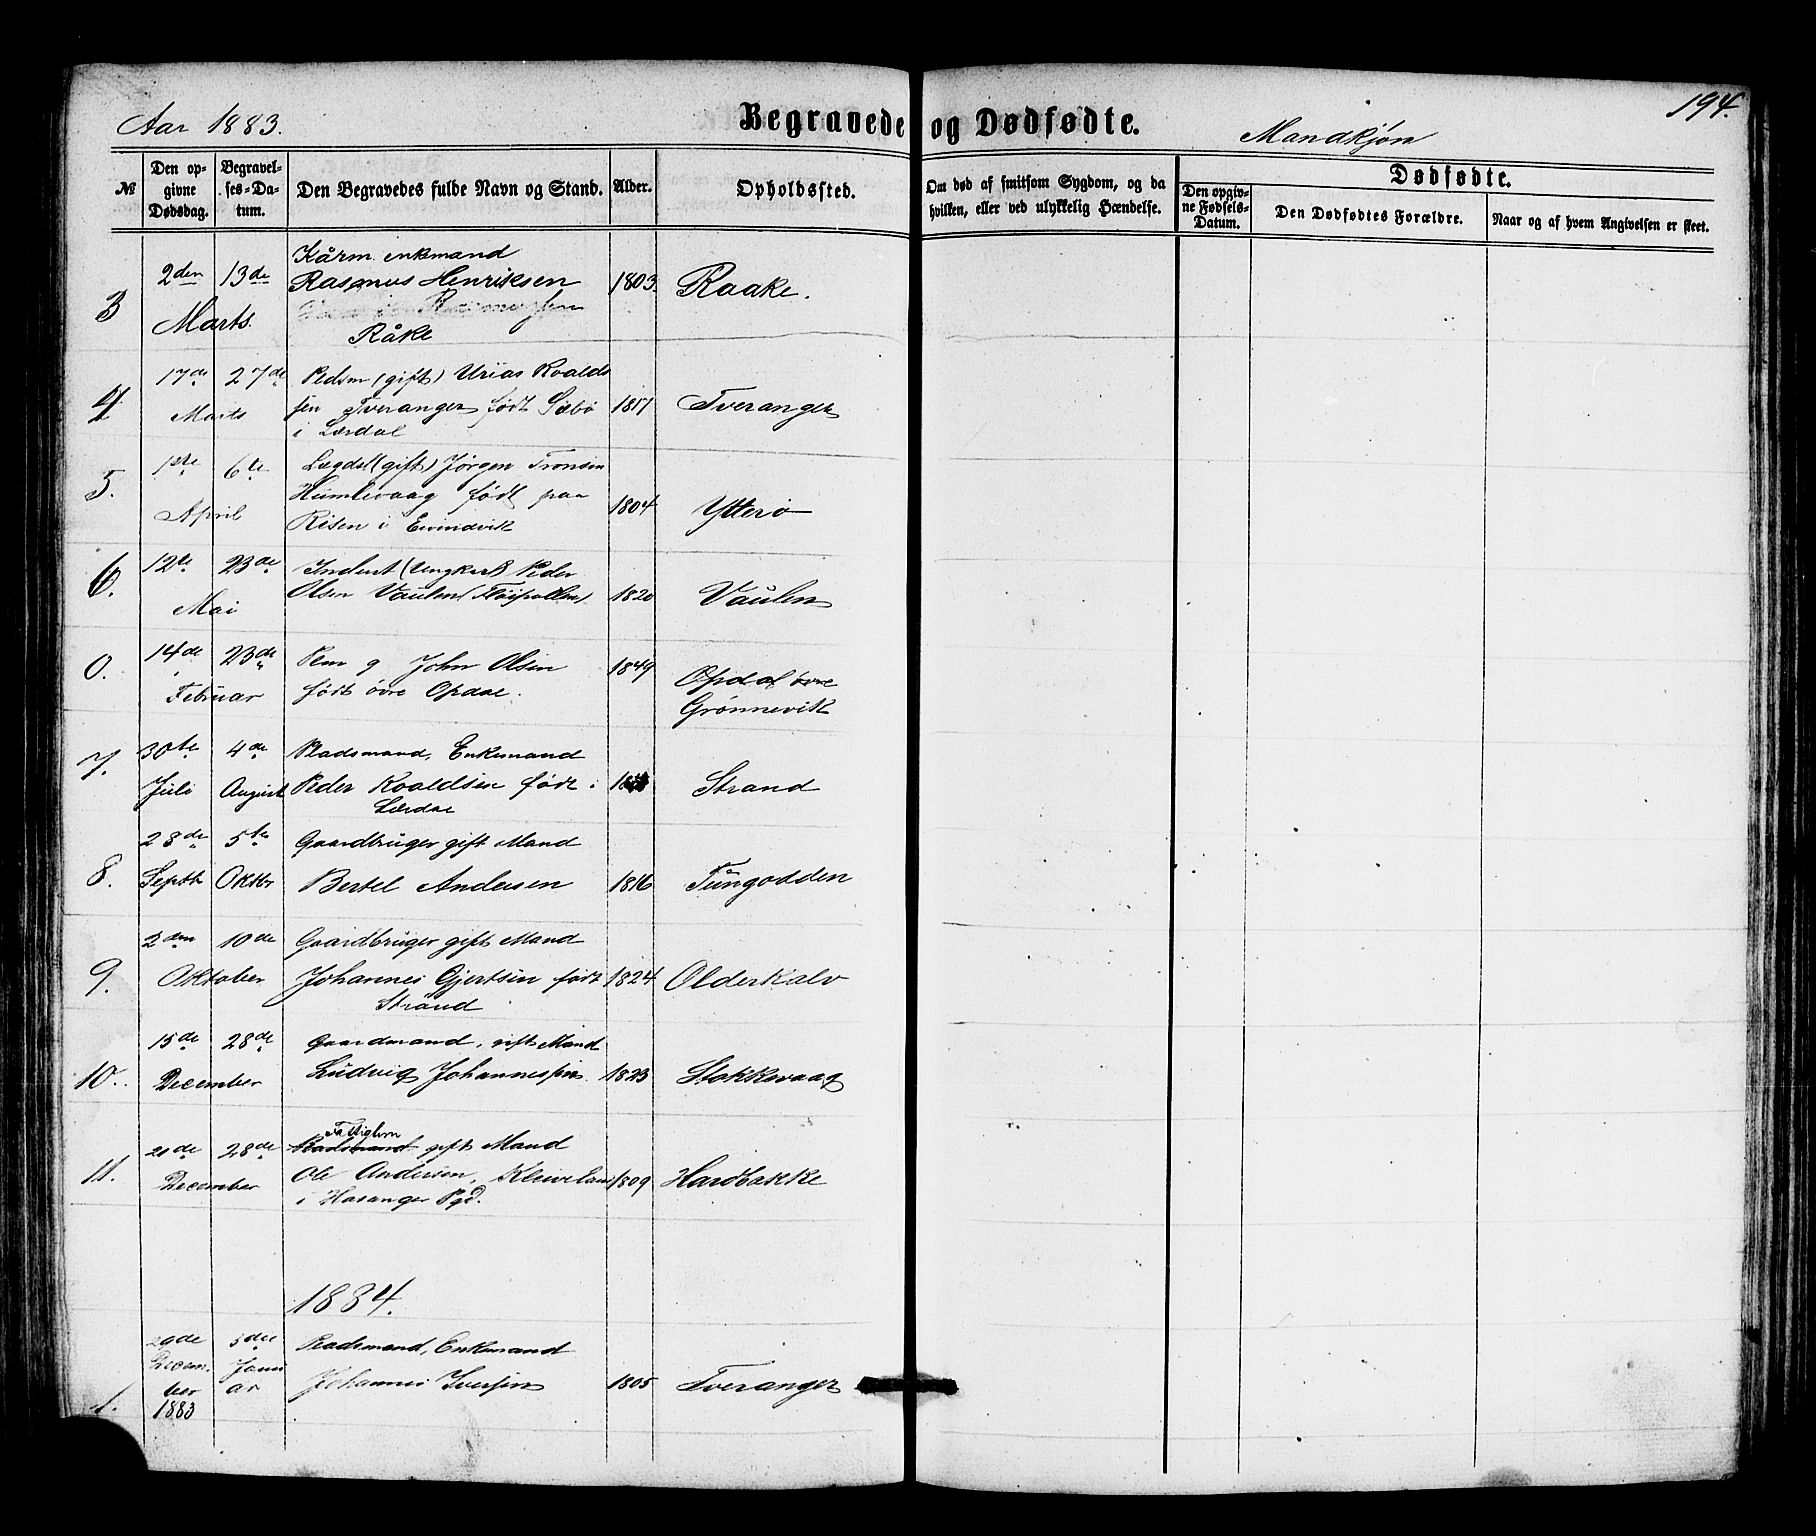 Aar 1883.
Begravede og Dødfødte.
Mandkjøn
194.
№
Den opgivne Dødsdag.
Begravelses-Datum.
Den Begravedes fulde Navn og Stand.
Alder.
Opholdssted.
Om død af smitsom Sygdom, og da hvilken, eller ved ulykkelig Hændelse.
Dødfødte.
Den opgivne Fødsels-Datum.
Den Dødfødtes Forældre.
Naar og af hvem Angivelsen er skeet.
3
2den 13de
Marts.
Kårm. enkmand
Rasmus Henriksen
Råke
1803.
Raake.
4
17de 27de
Marts
Pedsm (gift) Urias Roalds
sen Tveranger født Sæbö
i Lærdal
1817
Tveranger
5.
1ste 6te
April
Lægdsl (gift) Jørgen Tronsen
Humlevaag født paa
Risen i Evindvik
1804
Ytterö
6.
12te 23de
Mai
Inderst (Ungkarl) Peder
Olsen Vaulen
1820
Vaulen
0.
14de 23de
Februar
Pem g John Olsen
født øvre Opdal.
1849
Opdal øvre
Grønnevik
7.
30te 4de
Juli August
Pladsmand, Enkemand
Peder Roaldsen født i
Lærdal
Strand
8.
28de 5te
Septb Oktbr
Gaardbruger gift Mand
Bertel Andersen
1816
Tungodden
9.
2den 10de
Oktober
Gaardbruger gift Mand
Johannes Gjertsen født
Strand
1824
Olderkalv
10.
15de 28de
December
Gaardmand, gift Mand
Ludvig Johannessen
1823
Stokkevaag
11.
21de 28de
December
Fattiglem
Pladsmand gift Mand
Ole Andersen, Kleiveland
i Hasanger Pgd.
1809
Hardbakke
1884.
1.
29de 5de
December Januar
1883
Pladsmand, Enkemand
Johannes Iversen
1805
Tveranger